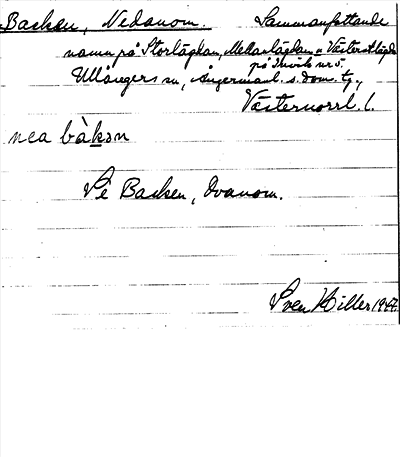 Backen, Nedanom. Sammanfattande
namn på Storlägdan, Mellanlägdan o Västerstlägda
på Invik nr 5.
Ullångers sn, Ångermanl. s. dom. tg.,
Västernorrl. l.
nea bàkɘn
Se Backen, Ovanom.
Sven Hiller 1947.